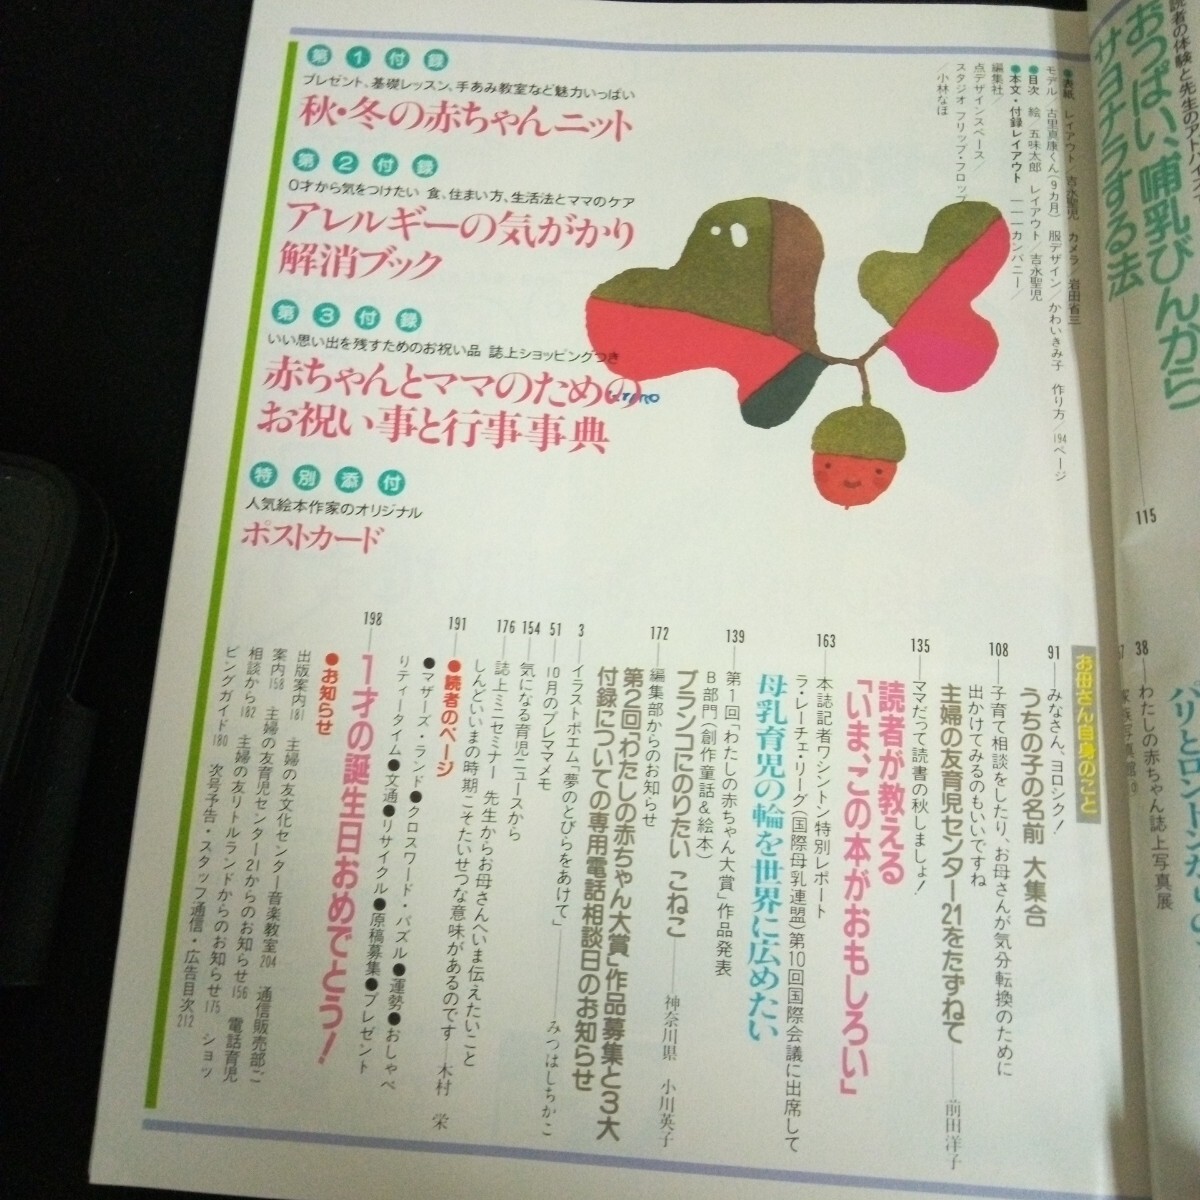 読者の体験と先生のアドバイス
おっぱい、哺乳びんから
サヨナラする法
115
38
わたしの赤ちゃん誌上写真展
●表紙 レイアウト/吉永聖児 カメラ/岩田省三
モデル/古里真康くん(9カ月) 服デザイン/かわいきみ子 作り方/194ページ
●目次 絵/五味太郎 レイアウト/吉永聖児
●本文・付録レイアウト
カンパニー/
編集社/
点デザインスペース/
スタジオ フリップ・フロップ
/小林なほ
第1付録
プレゼント、基礎レッスン、手あみ教室など魅力いっぱい
秋・冬の赤ちゃんニット
第2付録
0才から気をつけたい 食、住まい方、生活法とママのケア
アレルギーの気がかり
解消ブック
第3付録
いい思い出を残すためのお祝い品 誌上ショッピングつき
赤ちゃんとママのための
お祝い事と行事事典
特別添付
人気絵本作家のオリジナル
ポストカード
お母さん自身のこと
91
みなさん、ヨロシク!
うちの子の名前 大集合
108
子育て相談をしたり、お母さんが気分転換のために
出かけてみるのもいいですね
主婦の友育児センター21をたずねて
前田洋子
135
ママだって読書の秋しましょ!
読者が教える
「いま、この本がおもしろい」
163
本誌記者ワシントン特別レポート
ラ・レーチェ・リーグ(国際母乳連盟)第10回国際会議に出席して
母乳育児の輪を世界に広めたい
139
第1回「わたしの赤ちゃん大賞」作品発表
B部門(創作童話&絵本)
ブランコにのりたい こねこ
神奈川県 小川英子
172
編集部からのお知らせ
第2回「わたしの赤ちゃん大賞」作品募集と3大
付録についての専用電話相談日のお知らせ
3
イラストポエム「夢のとびらをあけて」
みつはしちかこ
51
10月のプレママメモ
154
気になる育児ニュースから
176
誌上ミニセミナー 先生からお母さんへいま伝えたいこと
しんどいいまの時期こそたいせつな意味があるのです
木村 栄
191
●読者のページ
●マザーズ・ランド●クロスワード・パズル●運勢●おしゃべ
りティータイム●文通●リサイクル●原稿募集●プレゼント
198
1才の誕生日おめでとう!
●お知らせ
出版案内181 主婦の友文化センター音楽教室204 通信販売部ご
案内158 主婦の友育児センター21からのお知らせ156 電話育児
相談から182 主婦の友リトルランドからのお知らせ175 ショッ
ピングガイド180 次号予告・スタッフ通信・広告目次212